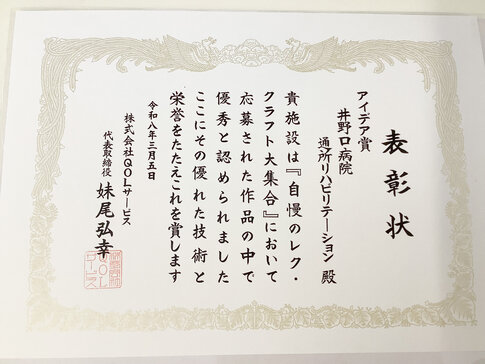 表彰状
アイデア賞
井野口病院
通所リハビリテーション 殿
貴施設は『自慢のレク・
クラフト大集合』において
応募された作品の中で
優秀と認められました
ここにその優れた技術と
栄誉をたたえこれを賞します
令和八年三月五日
株式会社QOLサービス
代表取締役 妹尾弘幸